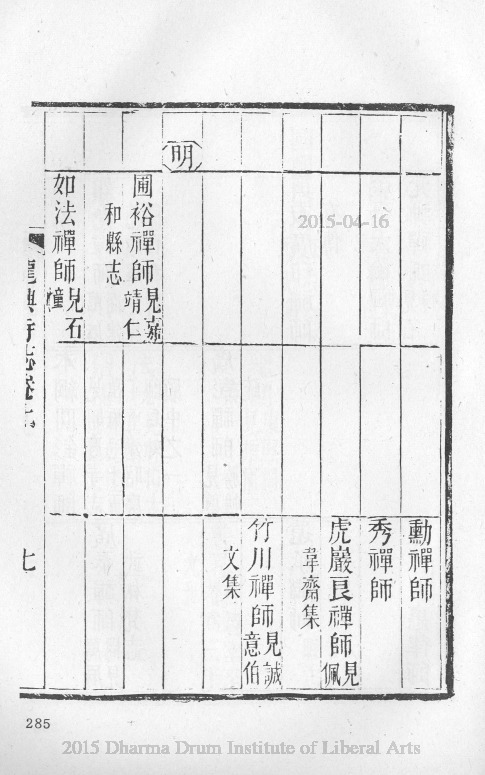 勳禪師
秀禪師
虎巖良禪師見佩
韋齋集
竹川禪師見誠意伯
文集
明
圃裕禪師見嘉靖仁
和縣志
如法禪師見石幢
龍興寺志卷
七
285
2015-04-16
2015 Dharma Drum Institute of Liberal Arts